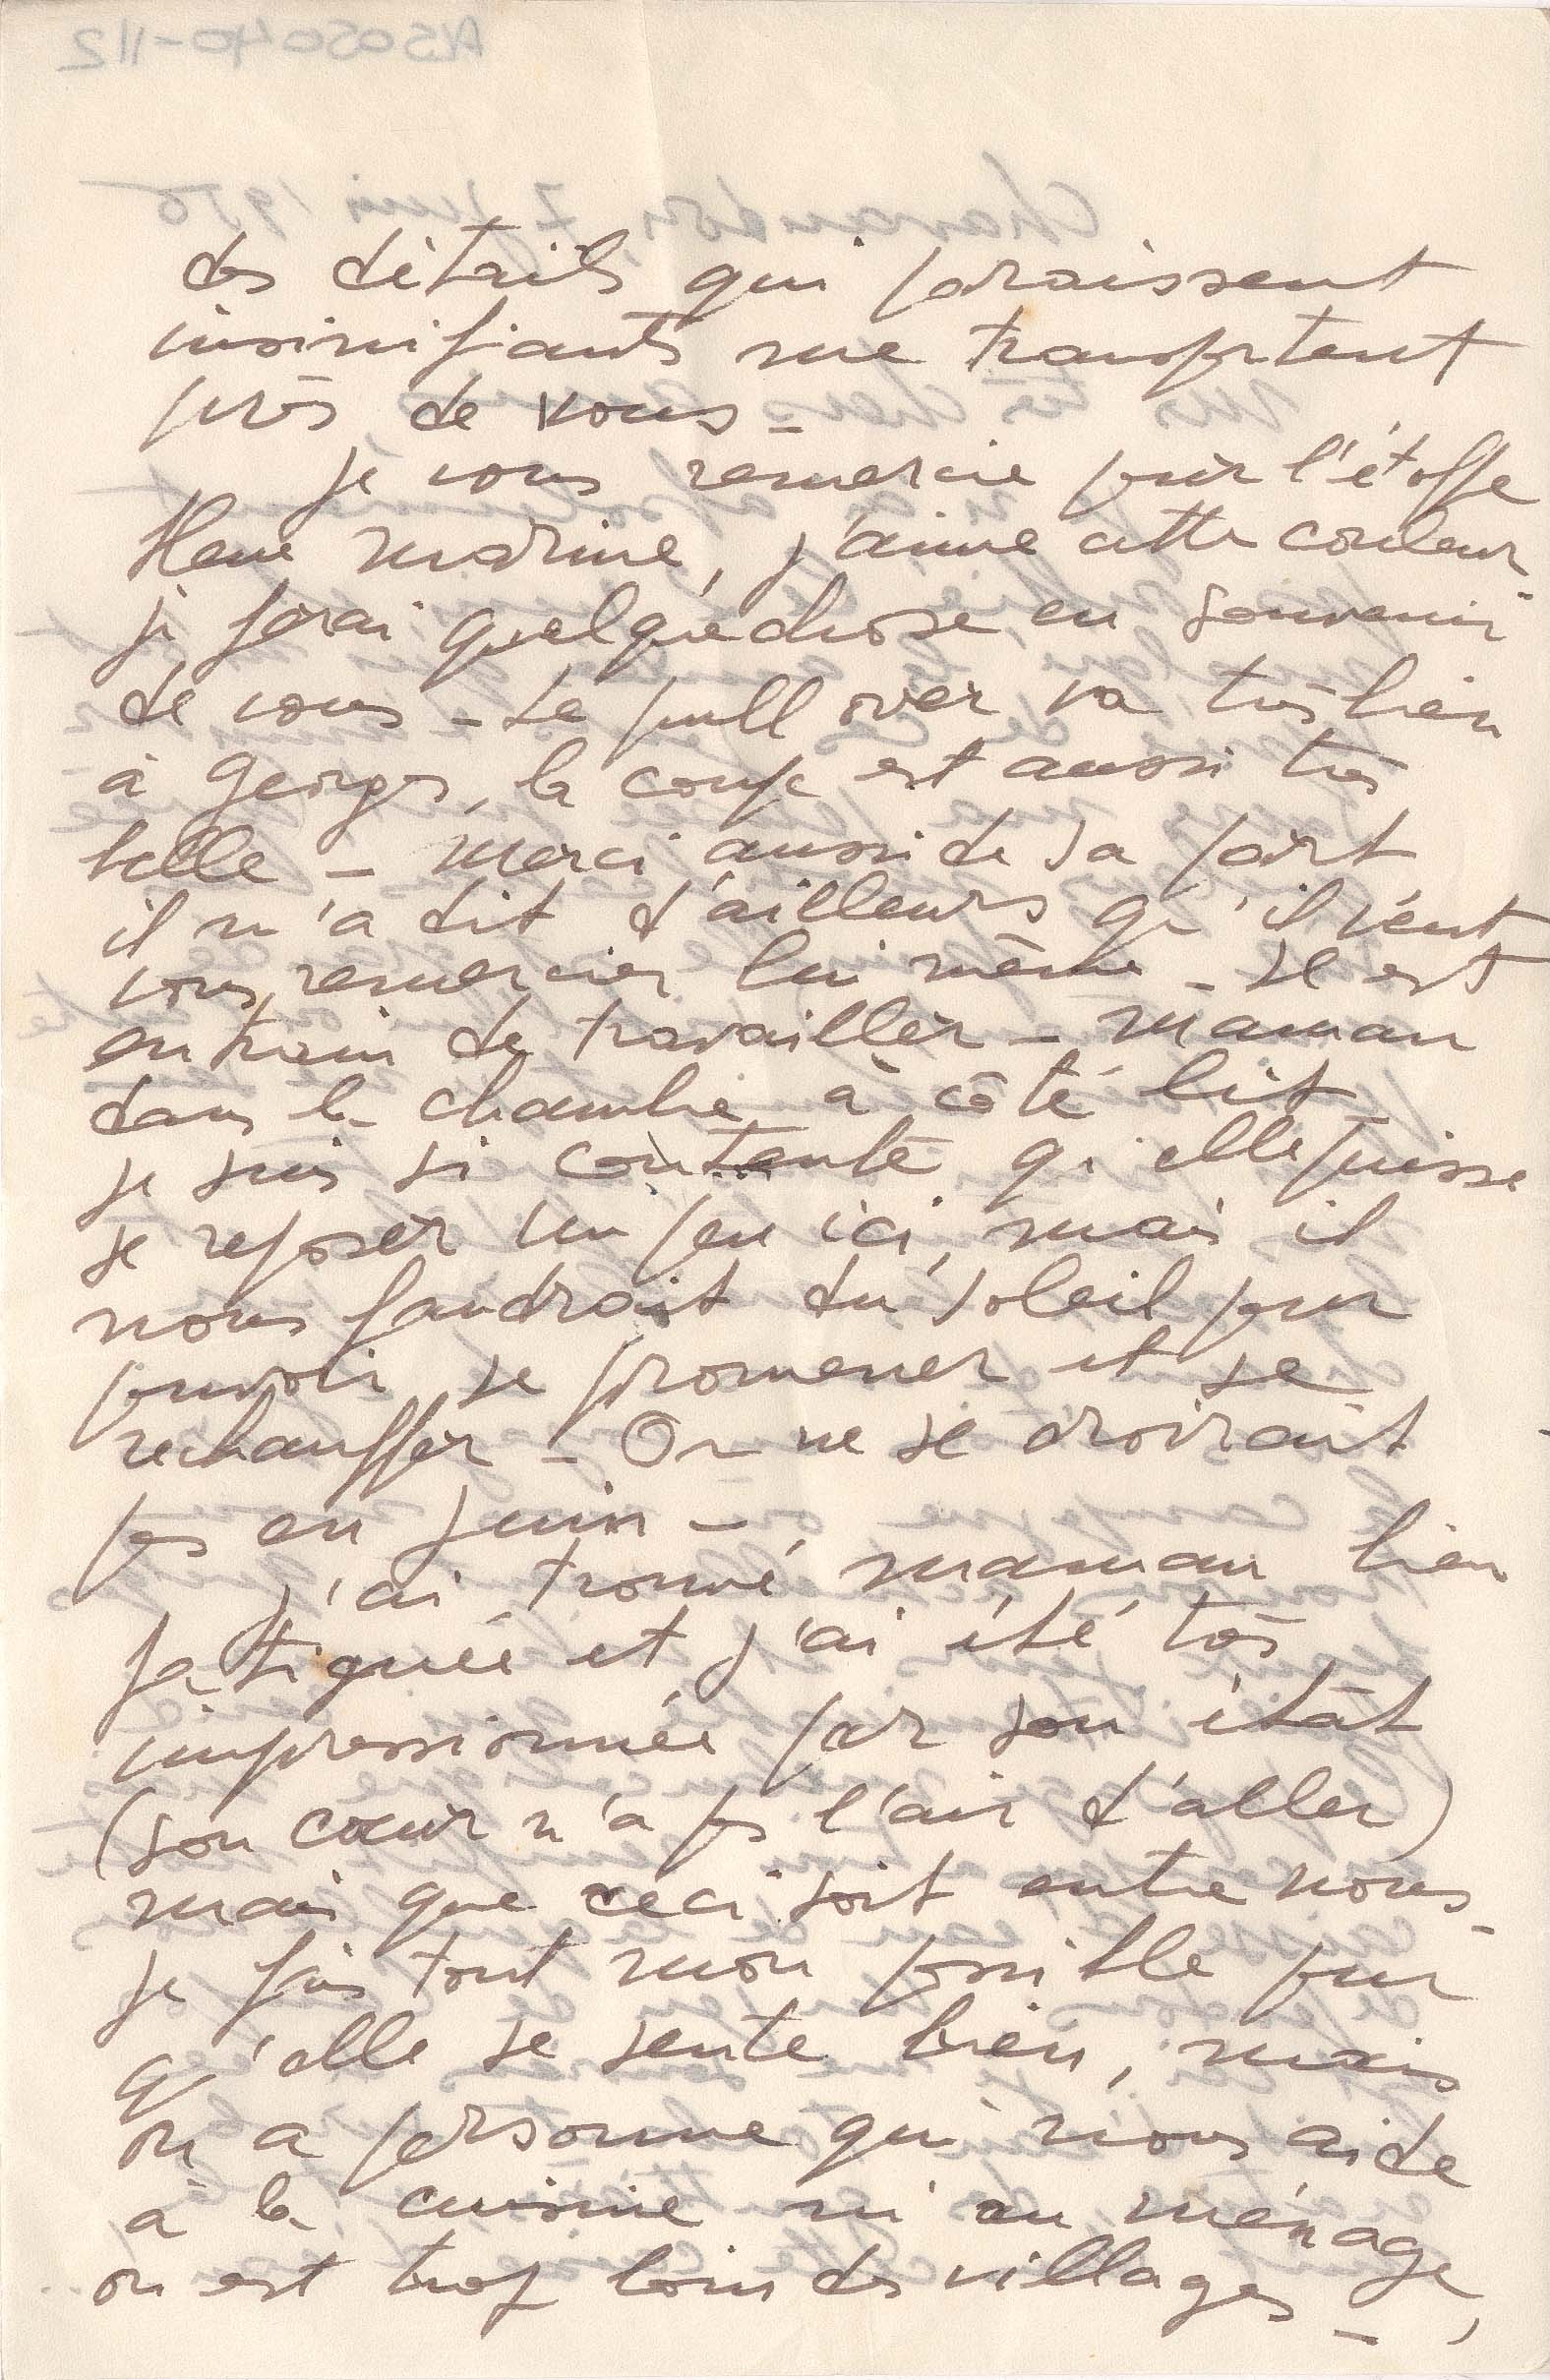 des détails qui paraissent
insinifiants me transportent
près de vous -
je vous remercie pour l'étoffe
bleue marine, j'aime cette couleur
je ferai quelque chose en souvenir
de vous - Le pull over va très bien
à Georges, la coupe est aussi très
belle - Merci aussi de sa part
il m'a dit d'ailleurs qu'il veut
vous remercier lui même - Il est
en train de travailler - Maman
dans la chambre à côté lit
je suis si contente qu'elle puisse
se reposer un peu ici, mais il
nous faudrait du soleil pour
pouvoir se promener et se
rechauffer - On ne se croirait
pas en juin -
J'ai trouvé maman bien
fatiguée et j'ai été très
impressionnée par son état
(son cœur n'a pas l'air d'aller)
mais que ceci soit entre nous -
je fais tout mon possible pour
qu'elle se sente bien, mais
on a personne qui nous aide
à la cuisine ni au ménage,
on est trop loin des villages -